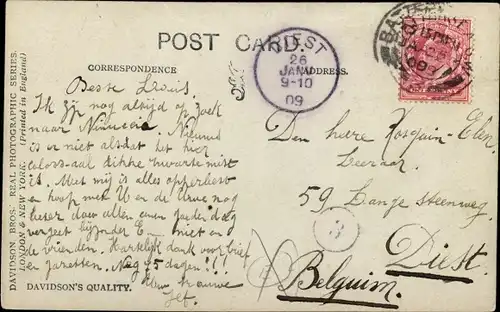 POST CARD.
CORRESPONDENCE
ADDRESS.
DIEST
26
JANV
9-10
09
BATTERSEA
Beste Louis,
Ik zijn nog altijd op zoek
naar Nieuws. Nieuws
is er niet alsdat het hier
colossaal dikke zwarte mist
is. Met mij is alles opperbest
en hoop met U en de Uwe nog
beter daar allen
vergeet bijzonder E— niet en
de vrienden. Hartelijk dank voor brief
en gazetten. Nog 45 dagen!!!
Uw trouwe
Jef.
Den heere Kosquin-Elen
Leeraar
59 Lange steenweg
3
Diest.
Belguim.
DAVIDSON BROS.' REAL PHOTOGRAPHIC SERIES.
LONDON & NEW YORK. (Printed in England)
DAVIDSON'S QUALITY.